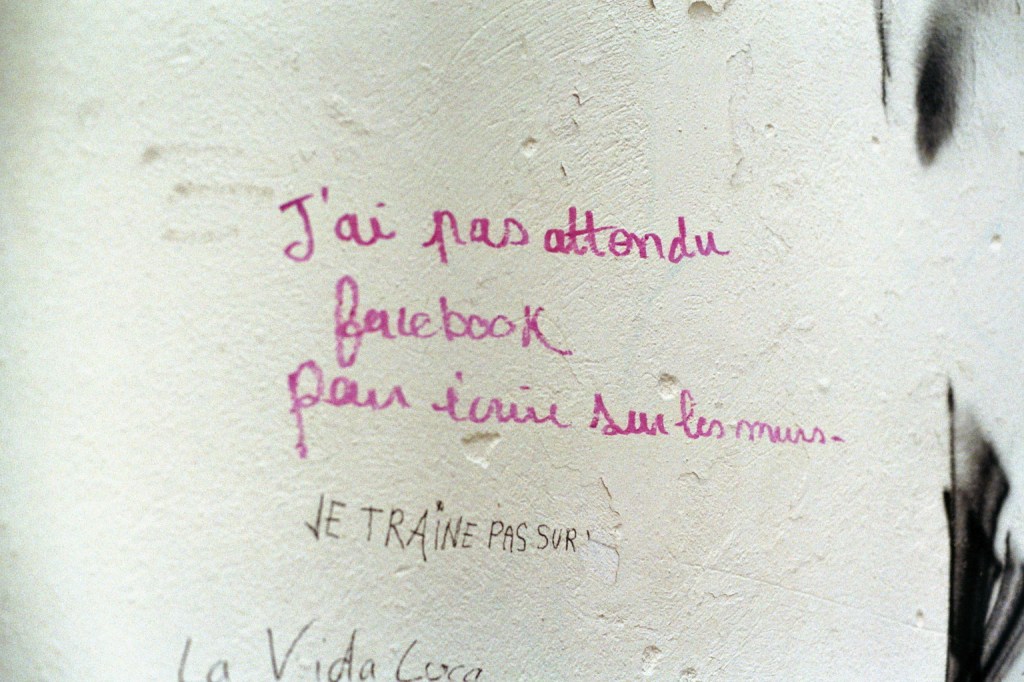 J'ai pas attendu
facebook
pour écrire sur les murs.
JE TRAÎNE PAS SUR
La Vida Loca